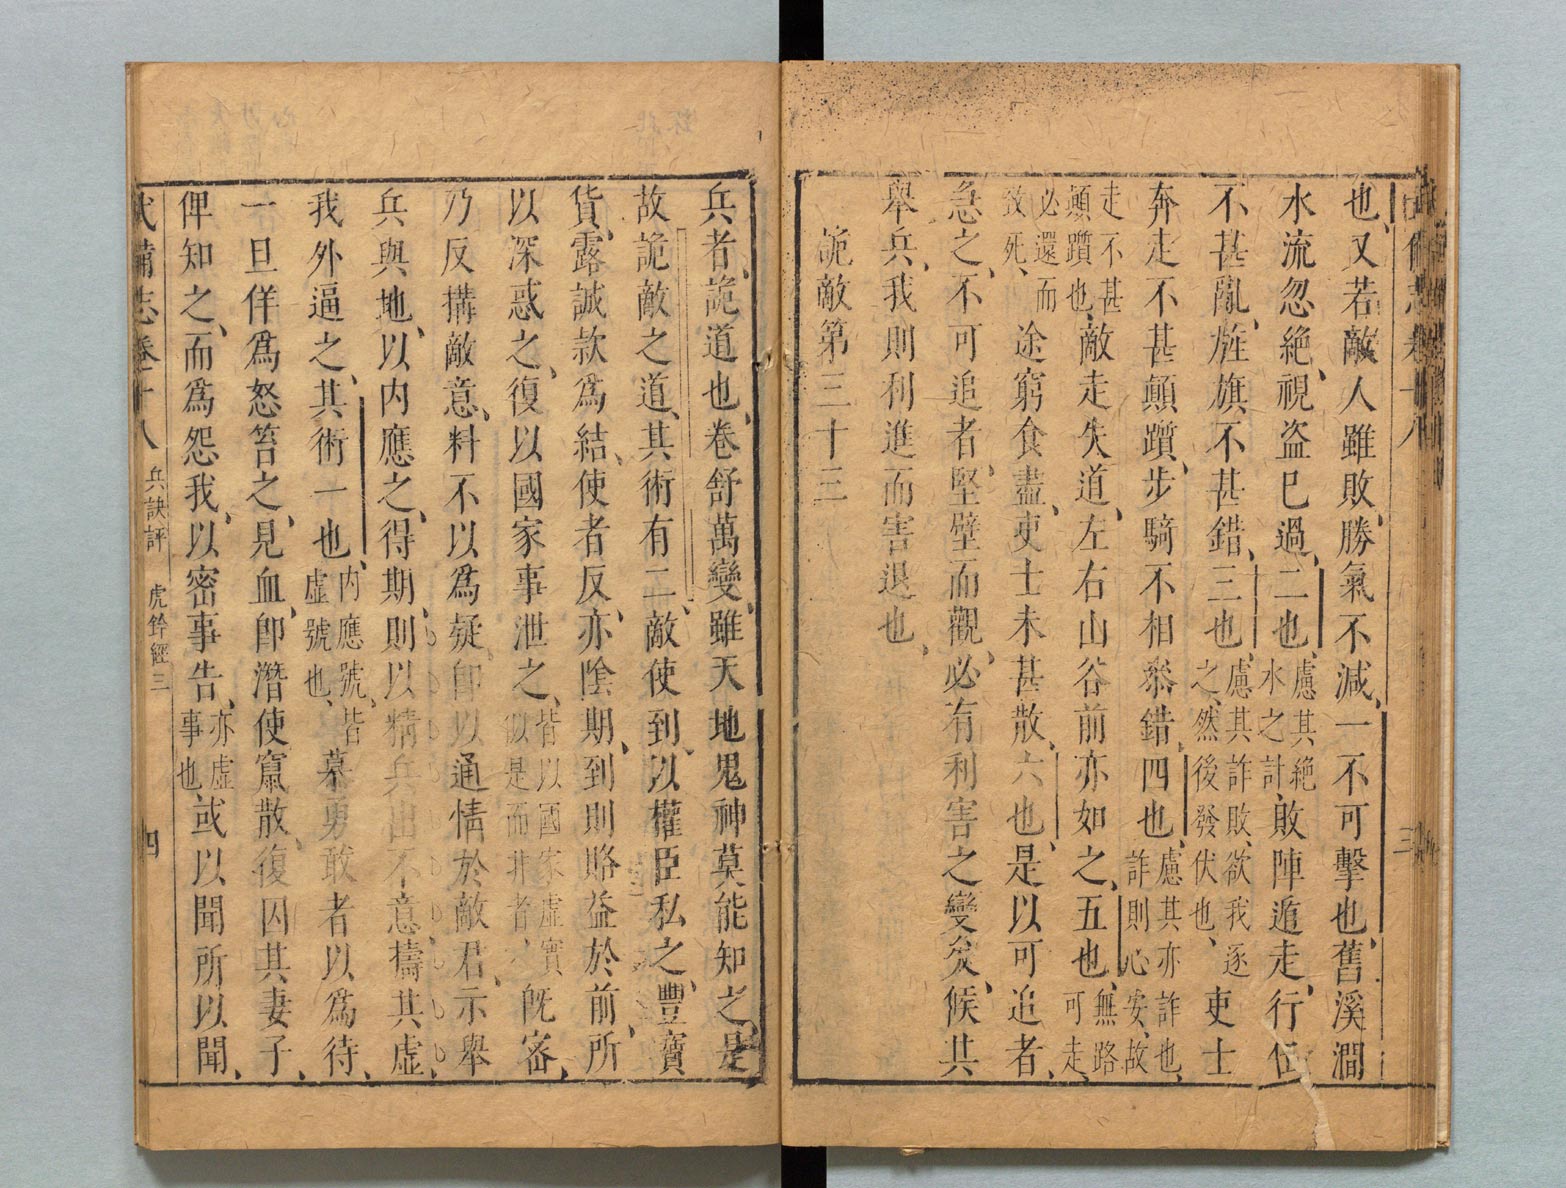 武備志卷十八
三
也、又若敵人雖敗、勝氣不減、一不可擊也、舊溪澗
水流忽絶、視盗已過、二也、慮其絶水之計、敗陣遁走、行伍
不甚亂、旌旗不甚錯、三也、慮其詐敗、欲我逐之、然後發伏也、吏士
奔走不甚顛躓、步騎不相叅錯、四也、慮其亦詐也、詐則心安、故
走不甚顛躓也、敵走失道、左右山谷前亦如之、五也、無路可走、
必還而致死、途窮食盡、吏士未甚散、六也、是以可追者、
急之、不可追者、堅壁而觀、必有利害之變矣、候其
舉兵、我則利進而害退也、
詭敵第三十三
兵者、詭道也、卷舒萬變、雖天地鬼神莫能知之、是
故詭敵之道、其術有二、敵使到、以權臣私之、豐寶
貨、露誠款爲結、使者反、亦陰期、到則賂益於前、所
以深惑之、復以國家事泄之、皆以國家虛實似是而非者之既審、
乃反搆敵意、料不以爲疑、卽以通情於敵君、示舉
兵與地、以内應之、得期、則以精兵出不意、擣其虛、
我外逼之、其術一也、内應號、皆虛號也、募勇敢者以爲待、
一旦佯爲怒笞之、見血、卽潛使竄散、復囚其妻子、
俾知之、而爲怨我、以密事告、亦虛事也、或以聞所以聞、
武備志卷十八 兵訣評 虎鈐經三
四